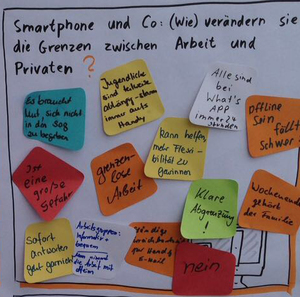 Smartphone und Co: (Wie) verändern sie
die Grenzen zwischen Arbeit und
Privaten ?
Es braucht
Mut, sich nicht
in den Sog
zu begeben
Jugendliche
sind teilweise
abhängig
immer aufs
Handy
Alle sind
bei
What's
APP
immer 24
Stunden
Offline
Sein
fällt
schwer
Ist
eine
große
Gefahr
grenzen-
lose
Arbeit
Kann helfen,
mehr Flexi-
bilität zu
gewinnen
Klare
Abgrenzung
!
Wochenende
gehört
der Familie
Sofort
antworten
gut
Arbeitsgruppen:
bequem
E-Mail
nein